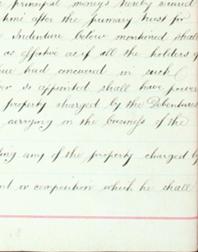 principal moneys hereby secured
time after the primary trust for
Indenture below mentioned shall
as effective as if all the holders of
had concurred in such
or so appointed shall have power
property charged by the Debentures
carrying on the business of the
any of the property charged by
or composition which he shall